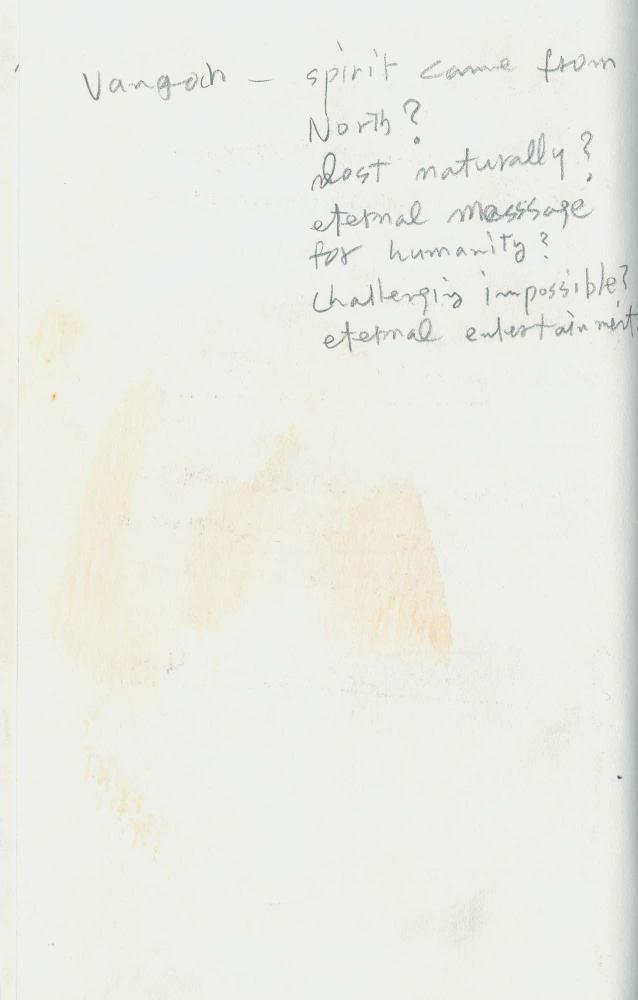 Vangoch – spirit came from
North?
Lost naturally?
eternal messsage
for humanity?
challengig impossible?
eternal entertainment